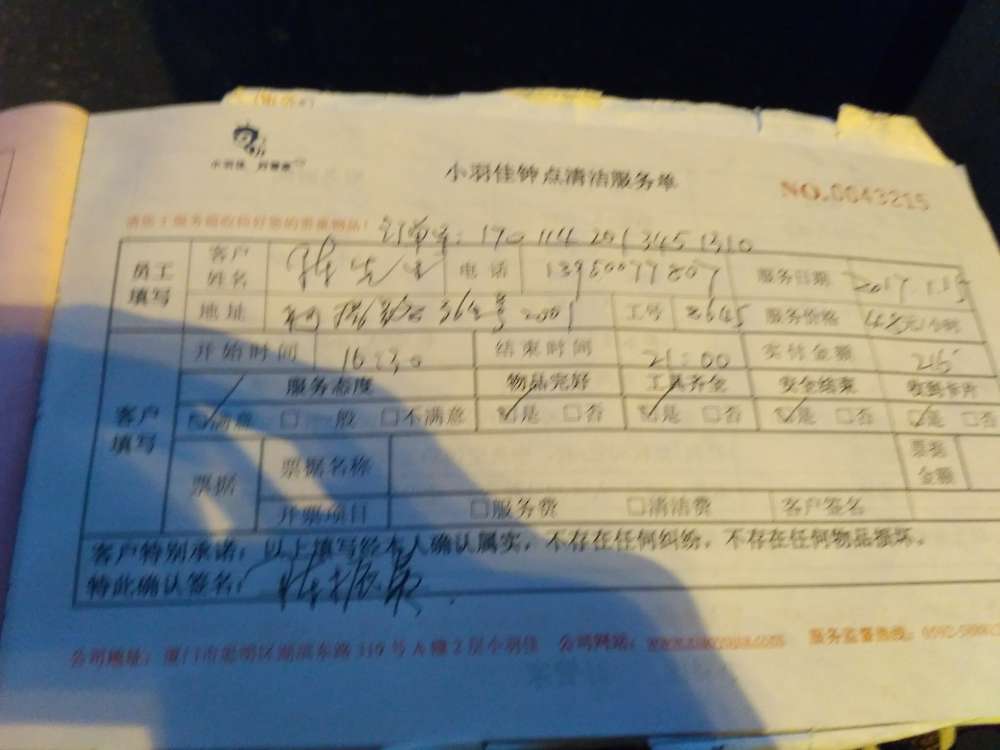 小羽佳 好管家
小羽佳钟点清洁服务单
NO.0043215
订单号：1701142013451310
员工填写 客户姓名 陈先生 电话 13950077807 服务日期
地址 36号2001 工号 服务价格 元/小时
开始时间 16:30 结束时间 21:00 实付金额
服务态度 物品完好 工具齐全 安全结束 收到卡片
客户填写 ☑满意 □一般 □不满意 ☑是 □否 ☑是 □否 ☑是 □否 ☑是 □否
票据 票据名称 票据金额
开票项目 □服务费 □清洁费 客户签名
客户特别承诺：以上填写经本人确认属实，不存在任何纠纷，不存在任何物品损坏。
特此确认签名：
公司地址：厦门市思明区湖滨东路319号A幢2层小羽佳 公司网站： 服务监督热线：